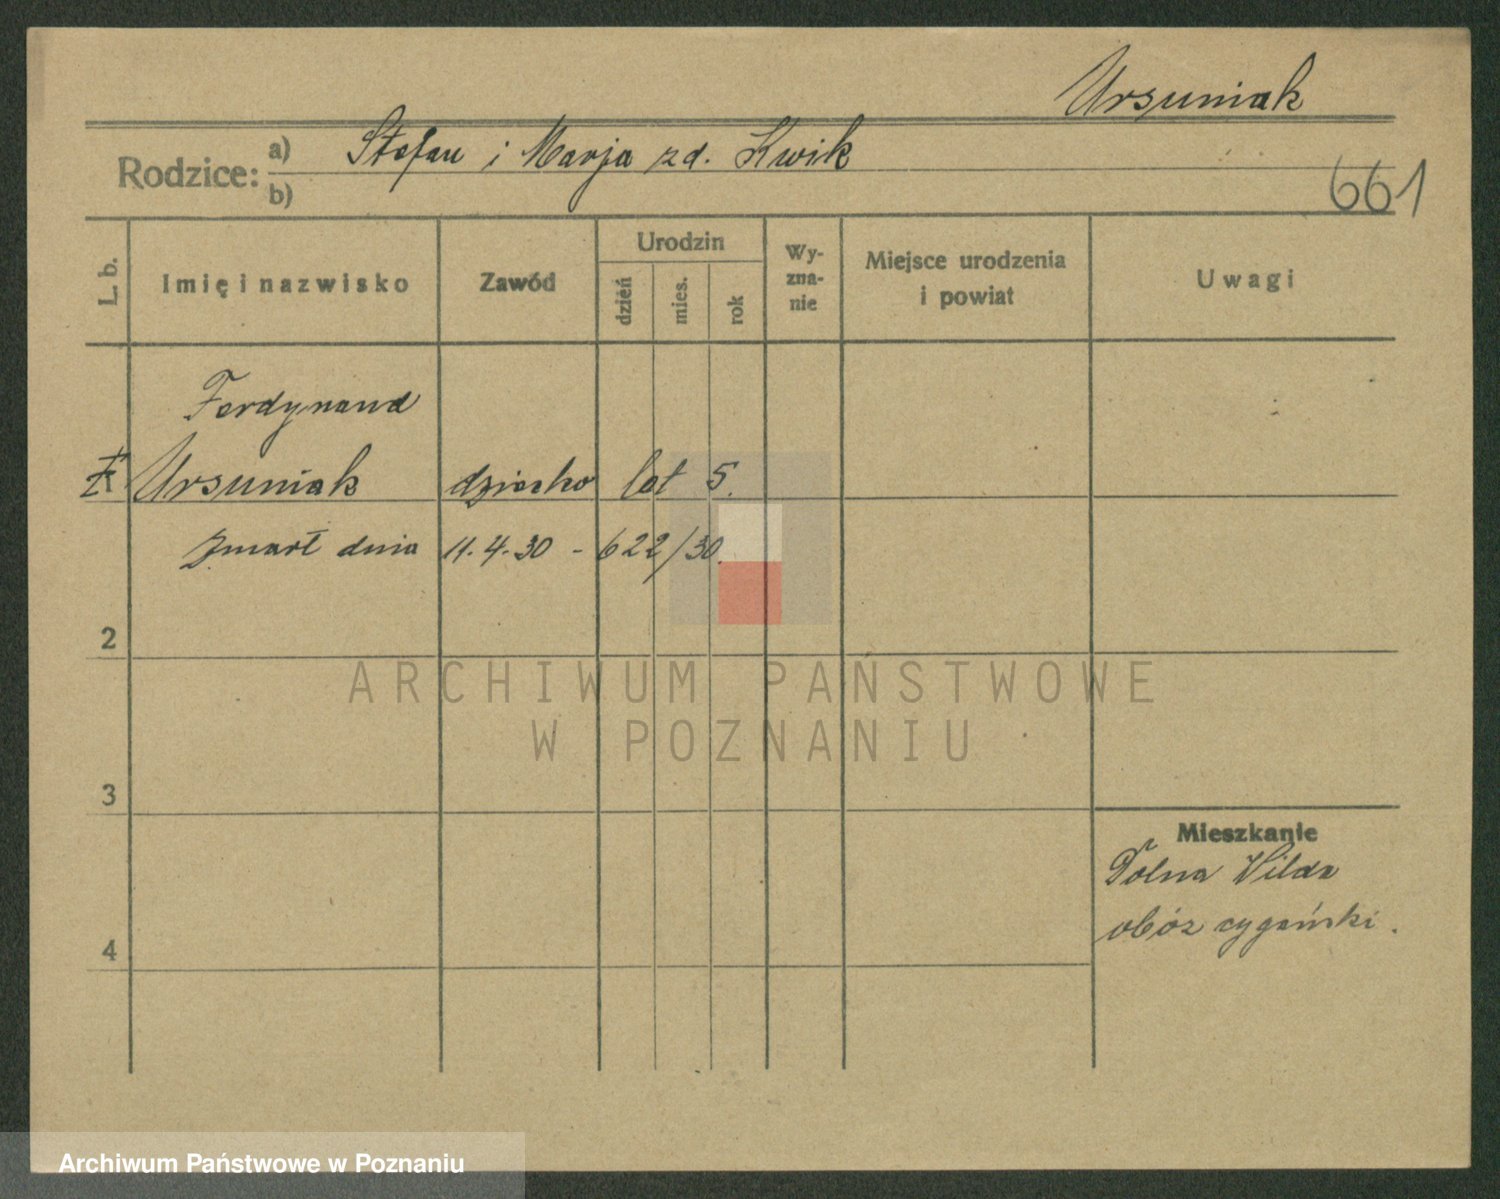 Ursuniak
Rodzice: a) Stefan i Marja zd. Kwik
b)
661
L. b.
Imię i nazwisko
Zawód
Urodzin
dzień
mies.
rok
Wy-
zna-
nie
Miejsce urodzenia
i powiat
Uwagi
Ferdynand
Ursuniak dziecko lat 5.
zmarł dnia 11.4.30 - 622/30.
2
ARCHIWUM PAŃSTWOWE
W POZNANIU
3
Mieszkanie
Dolna Wilda
obóz cygański.
4
Archiwum Państwowe w Poznaniu